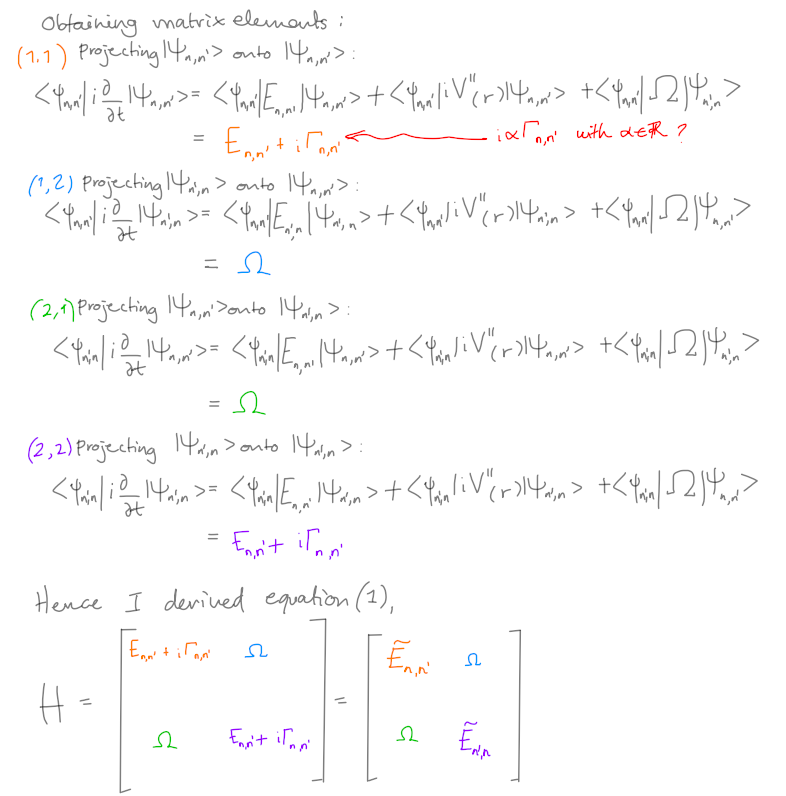 Obtaining matrix elements:
(1,1) Projecting |Ψn,n'> onto |Ψn,n'>:
<Ψn,n'| i ∂/∂t |Ψn,n'> = <Ψn,n'|En,n'|Ψn,n'> + <Ψn,n'|iV''(r)|Ψn,n'> + <Ψn,n'|Ω|Ψn',n>
= En,n' + iΓn,n' ← iαΓn,n' with α∈ℝ ?
(1,2) Projecting |Ψn',n> onto |Ψn,n'>:
<Ψn,n'| i ∂/∂t |Ψn',n> = <Ψn,n'|En',n|Ψn',n> + <Ψn,n'|iV''(r)|Ψn',n> + <Ψn,n'|Ω|Ψn,n'>
= Ω
(2,1) Projecting |Ψn,n'> onto |Ψn',n>:
<Ψn',n| i ∂/∂t |Ψn,n'> = <Ψn',n|En,n'|Ψn,n'> + <Ψn',n|iV''(r)|Ψn,n'> + <Ψn',n|Ω|Ψn',n>
= Ω
(2,2) Projecting |Ψn',n> onto |Ψn',n>:
<Ψn',n| i ∂/∂t |Ψn',n> = <Ψn',n|En,n'|Ψn',n> + <Ψn',n|iV''(r)|Ψn',n> + <Ψn',n|Ω|Ψn,n'>
= En,n' + iΓn,n'
Hence I derived equation (1),
H = [ En,n' + iΓn,n' Ω ] = [ Ẽn,n' Ω ]
[ Ω En,n' + iΓn,n' ] [ Ω Ẽn',n ]